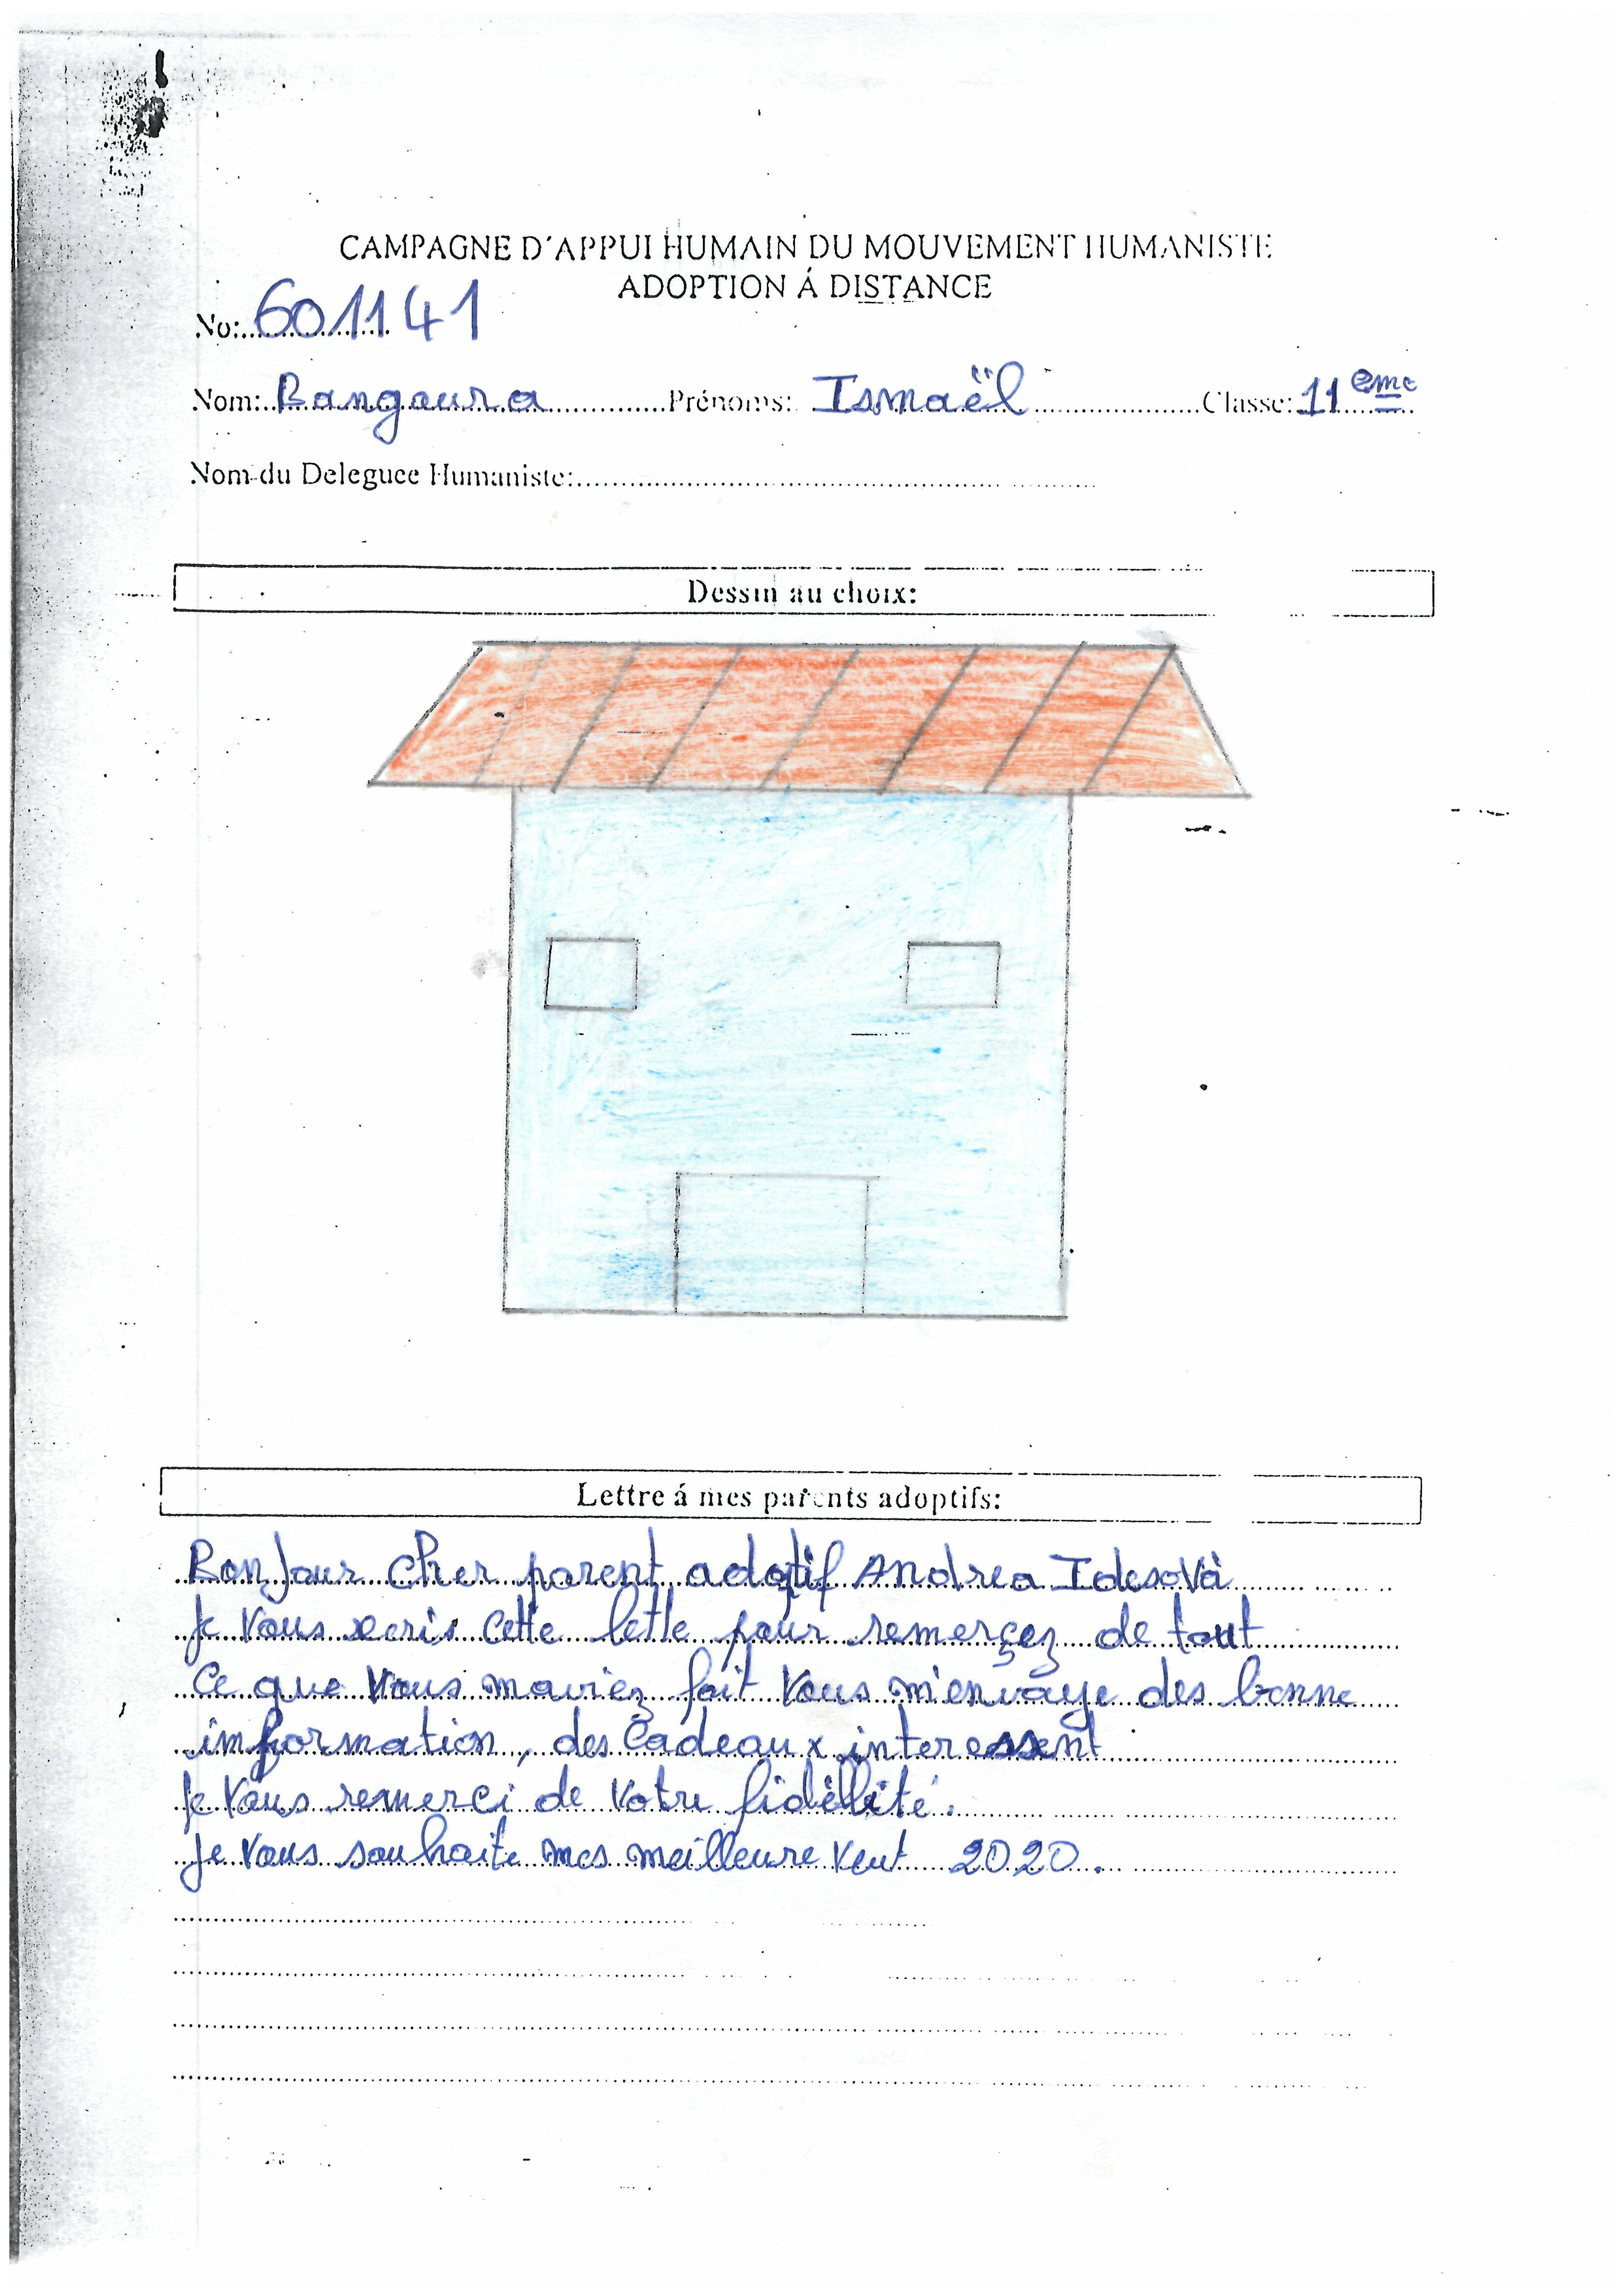 CAMPAGNE D'APPUI HUMAIN DU MOUVEMENT HUMANISTE
ADOPTION Á DISTANCE
No: 601141
Nom: Bangoura Prénoms: Ismaël Classe: 11 eme
Nom du Deleguee Humaniste:
Dessin au choix:
Lettre á mes parents adoptifs:
Bonjour cher parent adotif Andrea Idesovà
Je vous ecris cette lette pour remerçez de tout
ce que vous maviez fait vous m'envoye des bonne
imformation, des cadeaux interessent
Je vous remerci de votre fidèllité.
Je vous souhaite mes meilleure veut 2020.